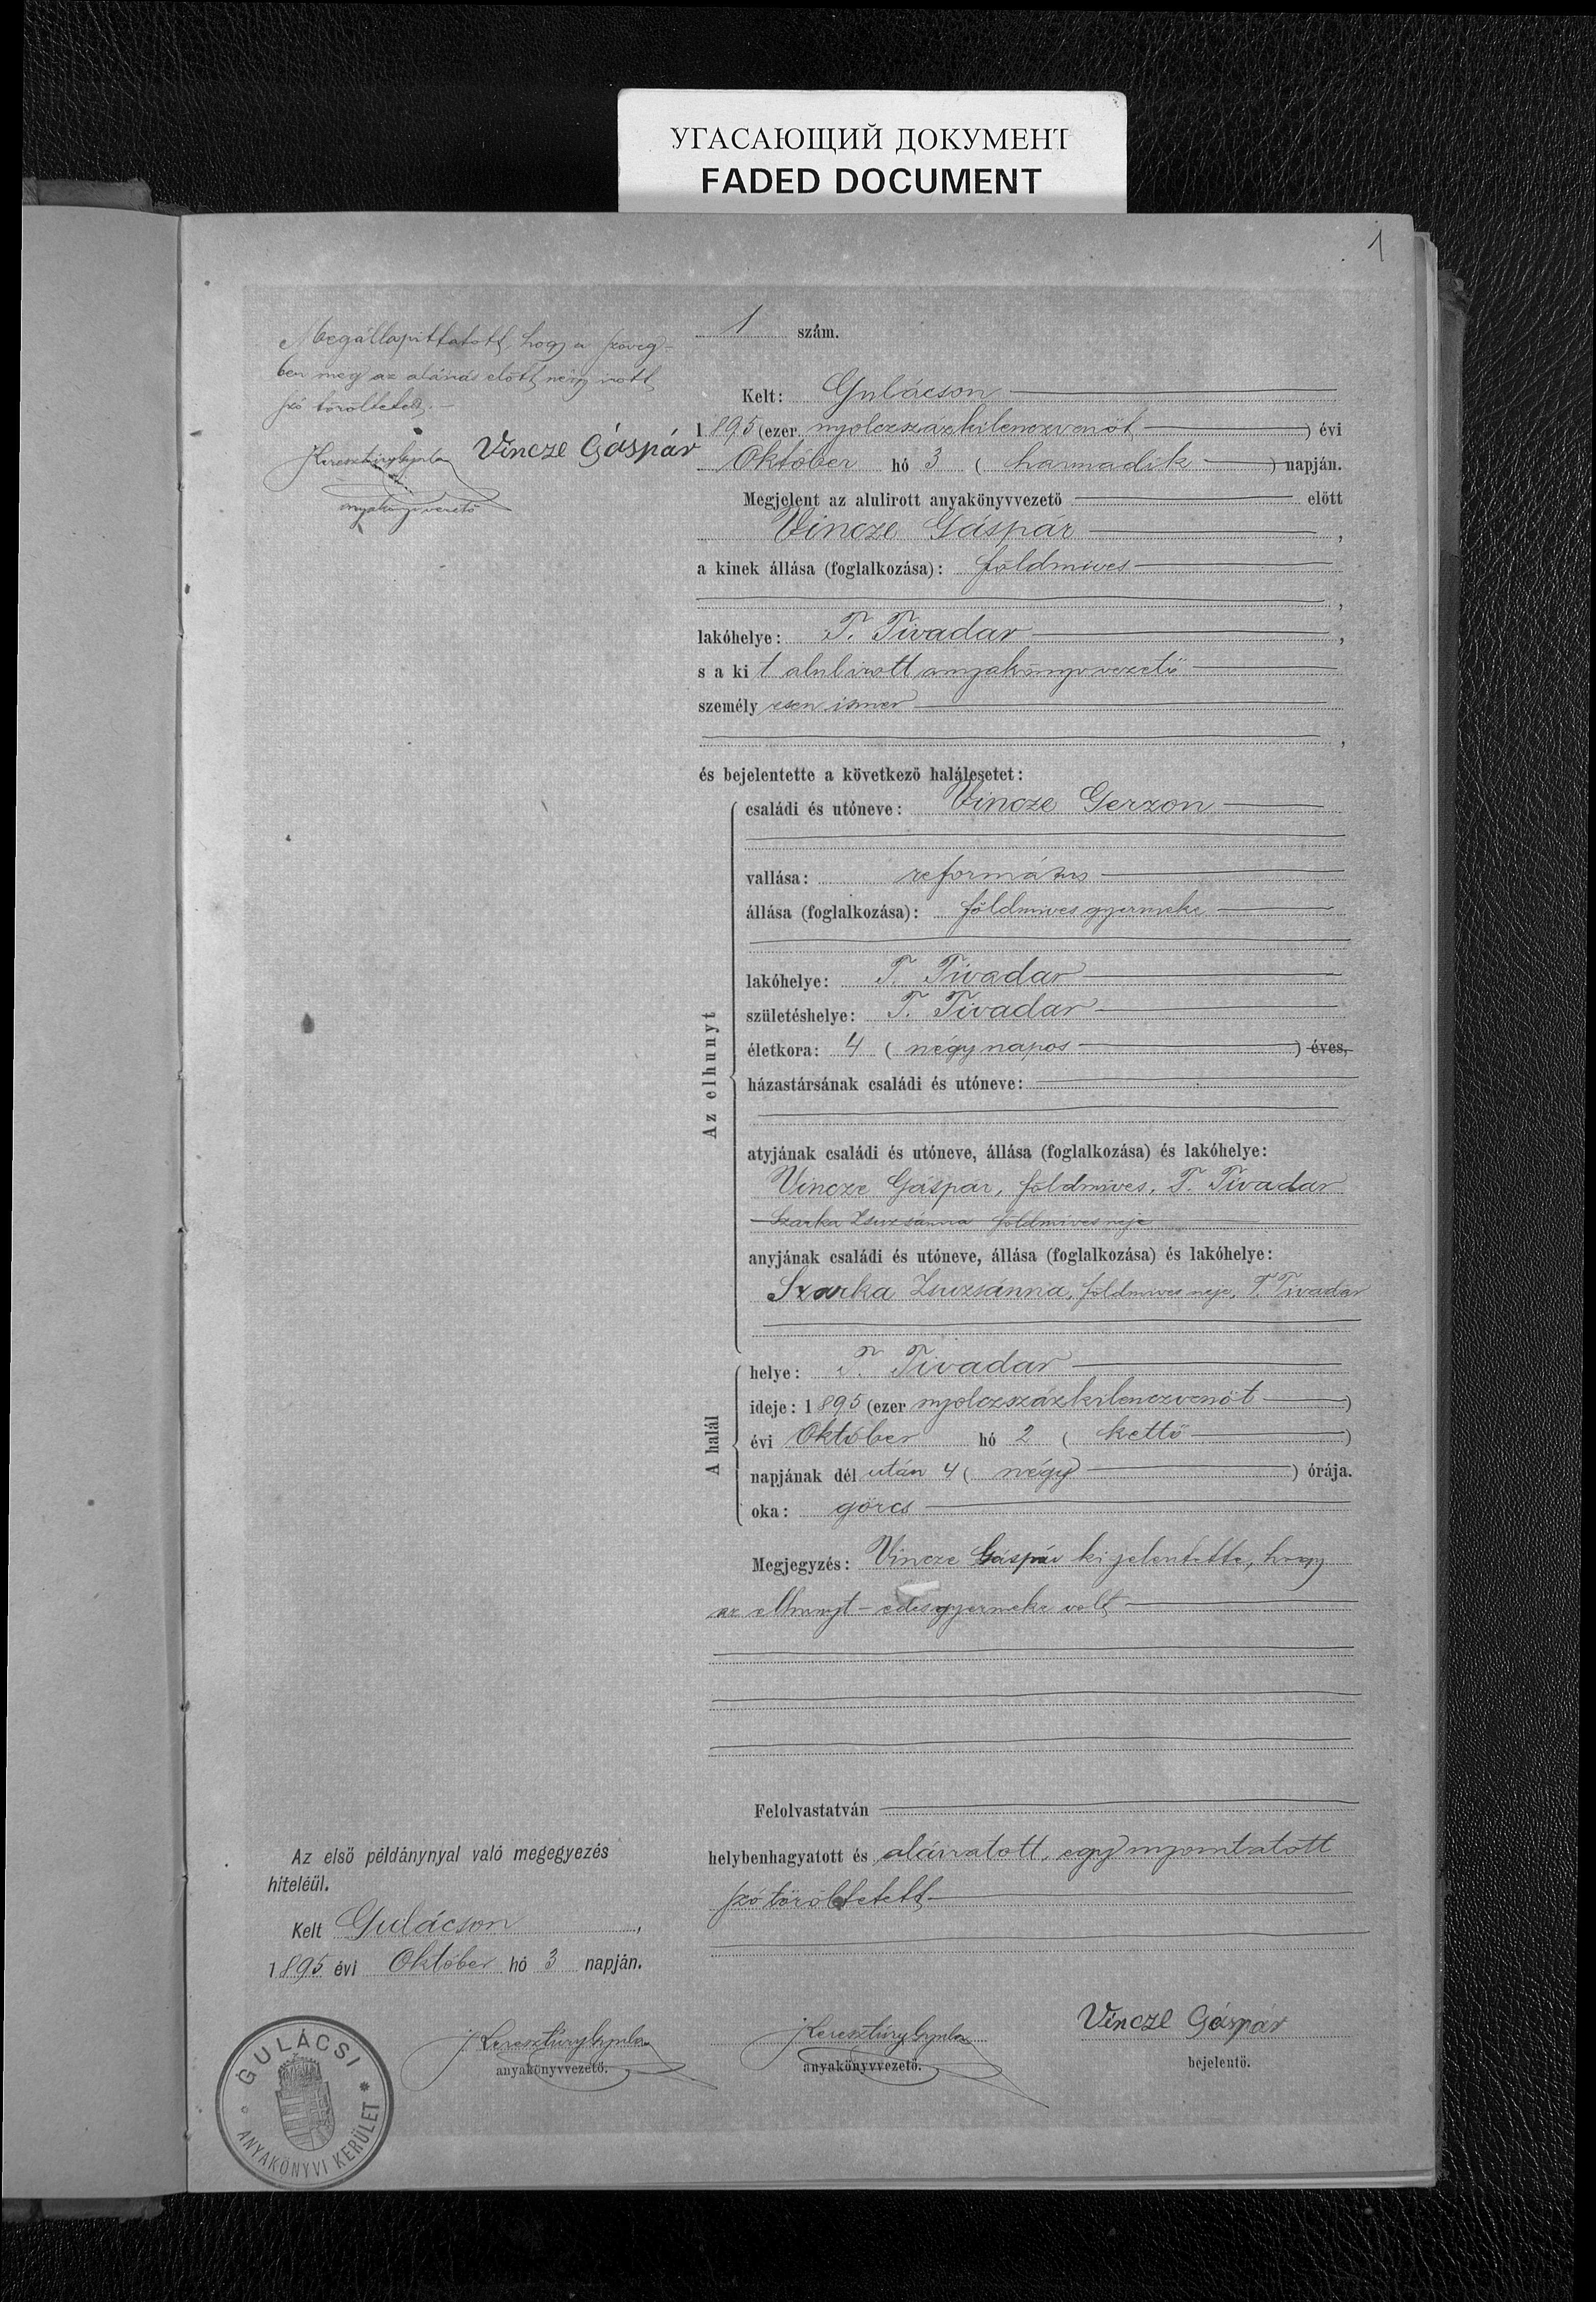 УГАСАЮЩИЙ ДОКУМЕНТ
FADED DOCUMENT
1
Megállapíttatott, hogy a szöveg-
ben meg az aláirás előtt négy irott
szó töröltetett.
Keresztúry Gyula Vincze Gáspár
anyakönyvvezető
1 szám.
Kelt: Gulácson
1895 (ezer nyolczszázkilenczvenöt) évi
Október hó 3 ( harmadik ) napján.
Megjelent az alulirott anyakönyvvezető előtt
Vincze Gáspár,
a kinek állása (foglalkozása): földmives
,
lakóhelye: T. Tivadar,
s a kit alulirott anyakönyvvezető
személyesen ismer
,
és bejelentette a következő halálesetet:
Az elhunyt
családi és utóneve: Vincze Gerzon
vallása: református
állása (foglalkozása): földmives gyermeke
lakóhelye: T. Tivadar
születéshelye: T. Tivadar
életkora: 4 ( négy napos ) éves,
házastársának családi és utóneve:
atyjának családi és utóneve, állása (foglalkozása) és lakóhelye:
Vincze Gáspár, földmives, T. Tivadar
Szarka Zsuzsánna földmives neje
anyjának családi és utóneve, állása (foglalkozása) és lakóhelye:
Szarka Zsuzsánna, földmives neje, T. Tivadar
A halál
helye: T. Tivadar
ideje: 1895 (ezer nyolczszázkilenczvenöt)
évi Október hó 2 ( kettő )
napjának dél után 4 ( négy ) órája.
oka: görcs
Megjegyzés: Vincze Gáspár kijelentette, hogy
az elhunyt – édes gyermeke volt
Felolvastatván
helybenhagyatott és aláiratott, egy nyomtatott
szó töröltetett
Az első példánynyal való megegyezés
hiteléül.
Kelt Gulácson,
1895 évi Október hó 3 napján.
Keresztúry Gyula
anyakönyvvezető.
Keresztúry Gyula
anyakönyvvezető.
Vincze Gáspár
bejelentő.
GULÁCSI
ANYAKÖNYVI KERÜLET